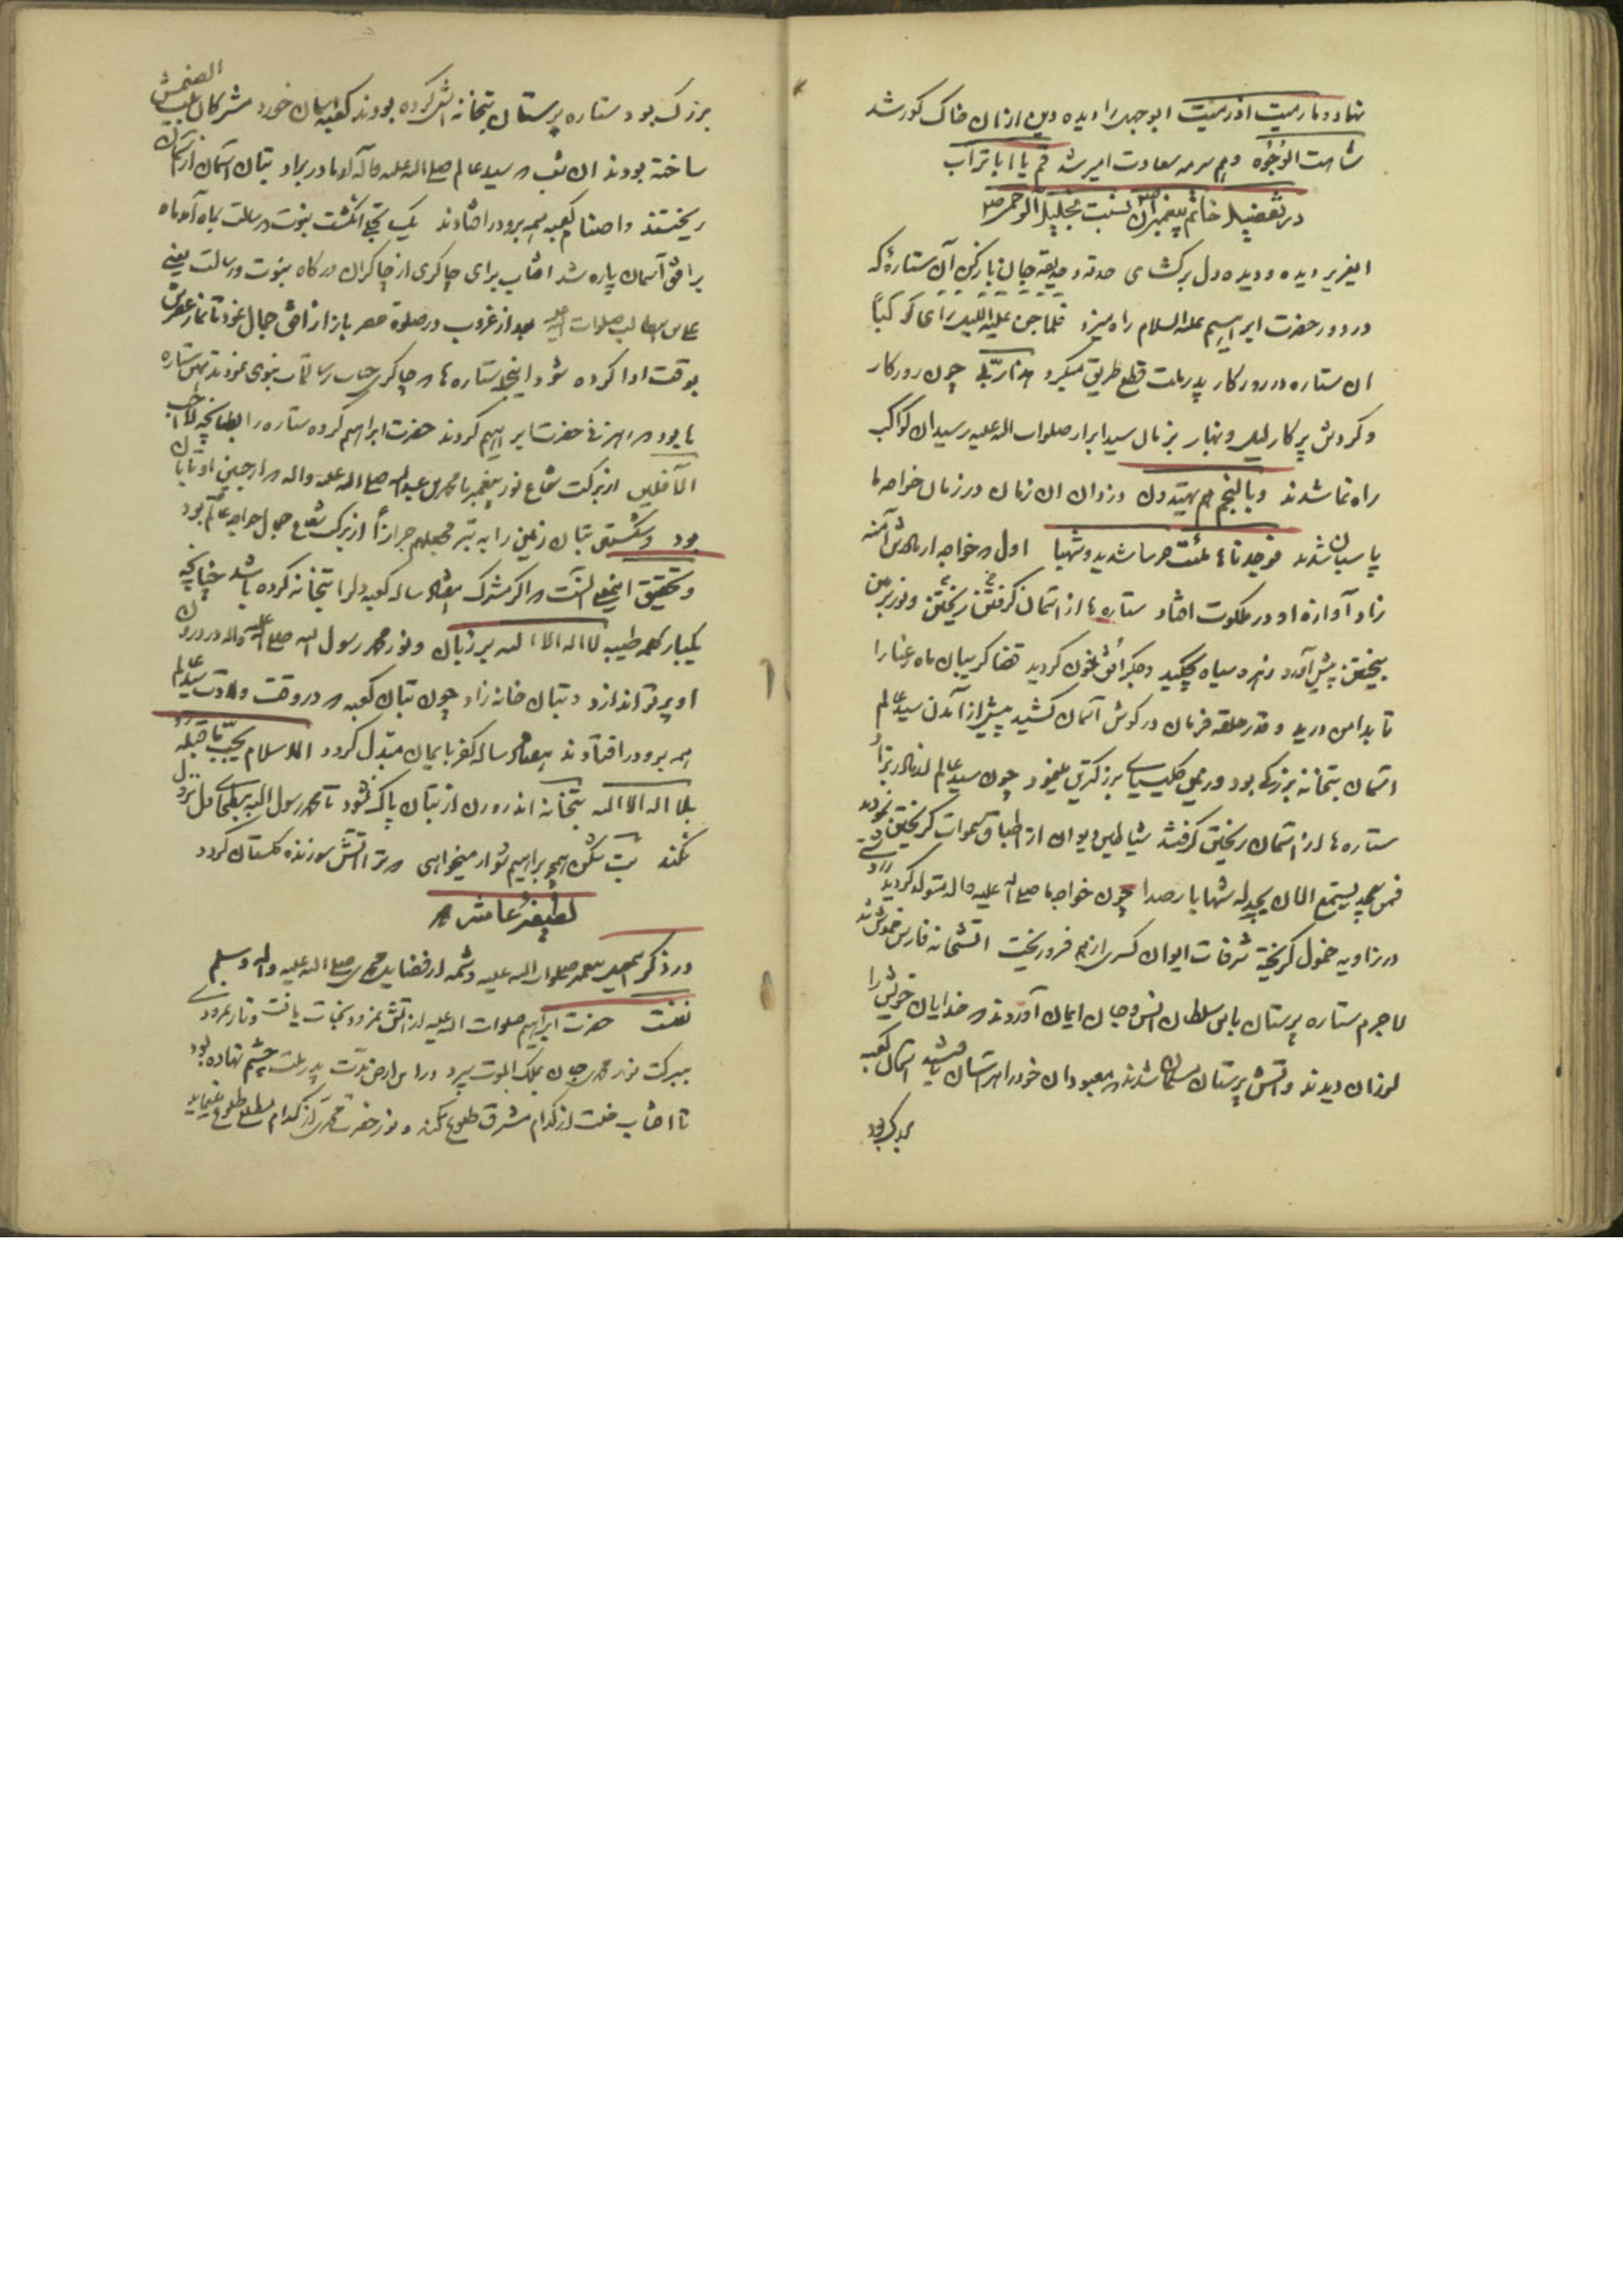 نهاد و ما رمیت اذ رمیت ابوجهل را دیده دین از ان خاک کور شد
شاهت الوجوه و هم سرمه سعادت امیر شد قم یا ابا تراب
در تفضیل خاتم پیغمبران نسبت بخلیل الرحمن
ایعزیز دیده و دیده دل برکشای حدقه و حدیقه جان باز کن آن ستارهٔ که
در دور حضرت ابراهیم علیه السلام راه میزد فلما جن علیه اللیل رای کوکباً
ان ستاره در روزکار پدر ملت قطع طریق میکرد هذا ربّی چون روزکار
و کردش پرکار لیل و نهار بزمان سید ابرار صلوات الله علیه رسید ان کواکب
راه نما شدند و بالنجم هم یهتدون دزدان ان زمان در زمان خواجه ما
پاسبان شدند فوجدناها ملئت حرسا شدیدا و شهبا اول خواجه از مادرش آمنه
زاد آوازه او در ملکوت افتاد ستاره ها از اسمان کرفتن ریختن و نور بر زمین
بیختن پیش آورد زهره سیاه چکید و جکر افق بخون کردید قضا کریبان ماه رعنا را
تا بدامن درید و قدر حلقه فرمان در کوش آسمان کشید پیش از آمدن سید عالم
اسمان بتخانه بزرکی بود و زمین کلیسیای بزرکترین مینمود چون سید عالم از مادر بزاد
ستاره ها از اسمان ریختن کرفتند شیاطین و دیوان از اطباق سموات کریختن نمودند
فمن یستمع الان یجد له شهابا رصدا چون خواجه ما صلی الله علیه و اله متولد کردید
در زاویه خمول کریخته شرفات ایوان کسری از هم فرو ریخت اتشخانه فارس خموش شد
لاجرم ستاره پرستان باین سلطان انس و جان ایمان آوردند خدایان خویش را
لرزان دیدند و اتش پرستان مسلمان شدند معبودان خود را هراسان اسمان کعبه
بزرک بود
بزرک بود ستاره پرستان بتخانه اش کرده بودند کعبه اسمان خورد مشرکان بیت الصنمش
ساخته بودند ان شب سید عالم صلی الله علیه و آله از مادر بزاد بتان اسمان از آسمان
ریختند و اصنام کعبه همه برو در افتادند یک تجلی انکشت نبوت و رسالت بماه آمد ماه
بر افق آسمان پاره شد افتاب برای چاکری از چاکران درکاه نبوت و رسالت یعنی
علی بن ابیطالب صلوات الله علیه بعد از غروب در صلوة عصر باز از افق جمال نمود تا نماز عصرش
بوقت ادا کرده شود اینجا ستاره ها چاکری جناب رسالتماب نبوی نمودند همین ستاره
ها بود رهزنی حضرت ابراهیم کردند حضرت ابراهیم کرده ستاره را بطپانچه لا احب
الآفلین از برکت شعاع نور پیغمبر ما محمد بن عبدالله صلی الله علیه واله از جبین او تابان
بود و شکستن بتان زمین را به تبر فجعلهم جذاذاً از برکت شعاع جمال خواجه عالم بود
و تحقیق اینمعنی آنست اکر مشرک هفتاد ساله کعبه دل را بتخانه کرده باشد چنانچه
یکبار کلمه طیبه لا اله الا الله بر زبان و نور محمد رسول الله صلی الله علیه واله در درون
او پرتو اندازد دبتان خانه زاد چون بتان کعبه در وقت ولادت سید عالم
همه برو در افتادند هفتاد ساله کفر بایمان مبدل کردد الاسلام یجبّ ما قبله
بلا اله الا الله بتخانه اندرون از بتان پاک نشود تا محمد رسول الله
نکند بت شکن همچو براهیم شو ار میخواهی ترا اتش سوزنده کلستان کردد
لطیفهٔ عاشر
در ذکر پیغمبر صلوات الله علیه و شمه از فضایل محمدی صلی الله علیه واله وسلم
نعت حضرت ابراهیم صلوات الله علیه از اتش نمرود نجات یافت و نار نمرودی
ببرکت نور محمدی جان بملک الموت سپرد و پدر ملت چشم نهاده بود
تا افتاب خلت از کدام مشرق طلوع بکند و نور حضرت محمدی از کدام مطلع طلوع نماید